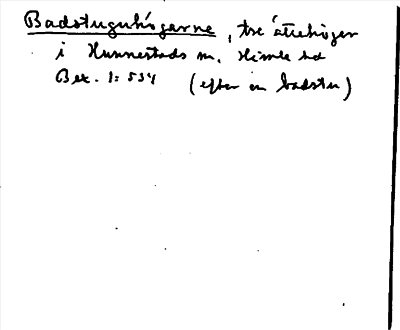 Badstuguhögarne, tre ättehögar
i Hunnestads sn. Himle hd
Bex. 1: 534 (efter en badstu)